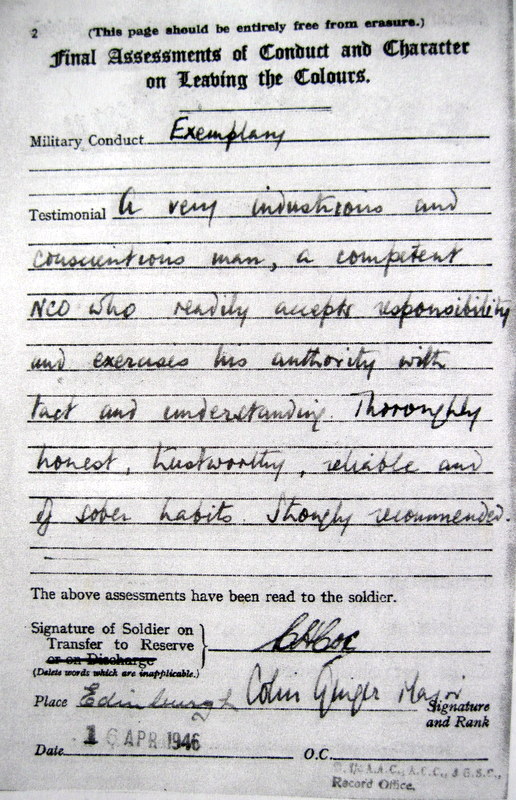 2 (This page should be entirely free from erasure.)
Final Assessments of Conduct and Character
on Leaving the Colours.
Military Conduct Exemplary
Testimonial A very industrious and
conscientious man, a competent
NCO who readily accepts responsibility
and exercises his authority with
tact and understanding. Thoroughly
honest, trustworthy, reliable and
of sober habits. Strongly recommended.
The above assessments have been read to the soldier.
Signature of Soldier on
Transfer to Reserve
or on Discharge
(Delete words which are inapplicable.)
Place Edinburgh Colin Major
Signature
and Rank
Date 16 APR 1946 O.C.
A.C.C.,
Record Office.